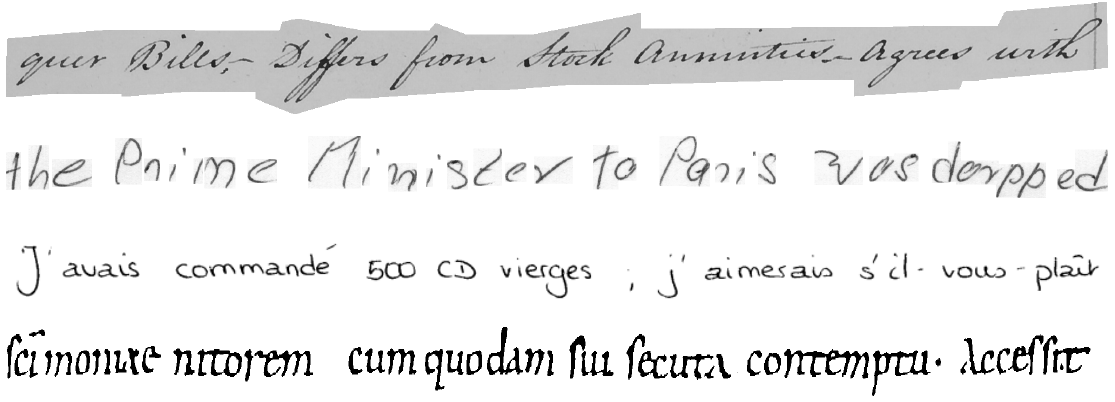 quer Bills,- Differs from Stock Annuities - Agrees with
the Prime Minister to Paris was dorpped
J'avais commandé 500 CD vierges , j'aimerais s'il-vous-plaît
scīmoniae nitorem cum quodam sui secuta contemptu. Accessit